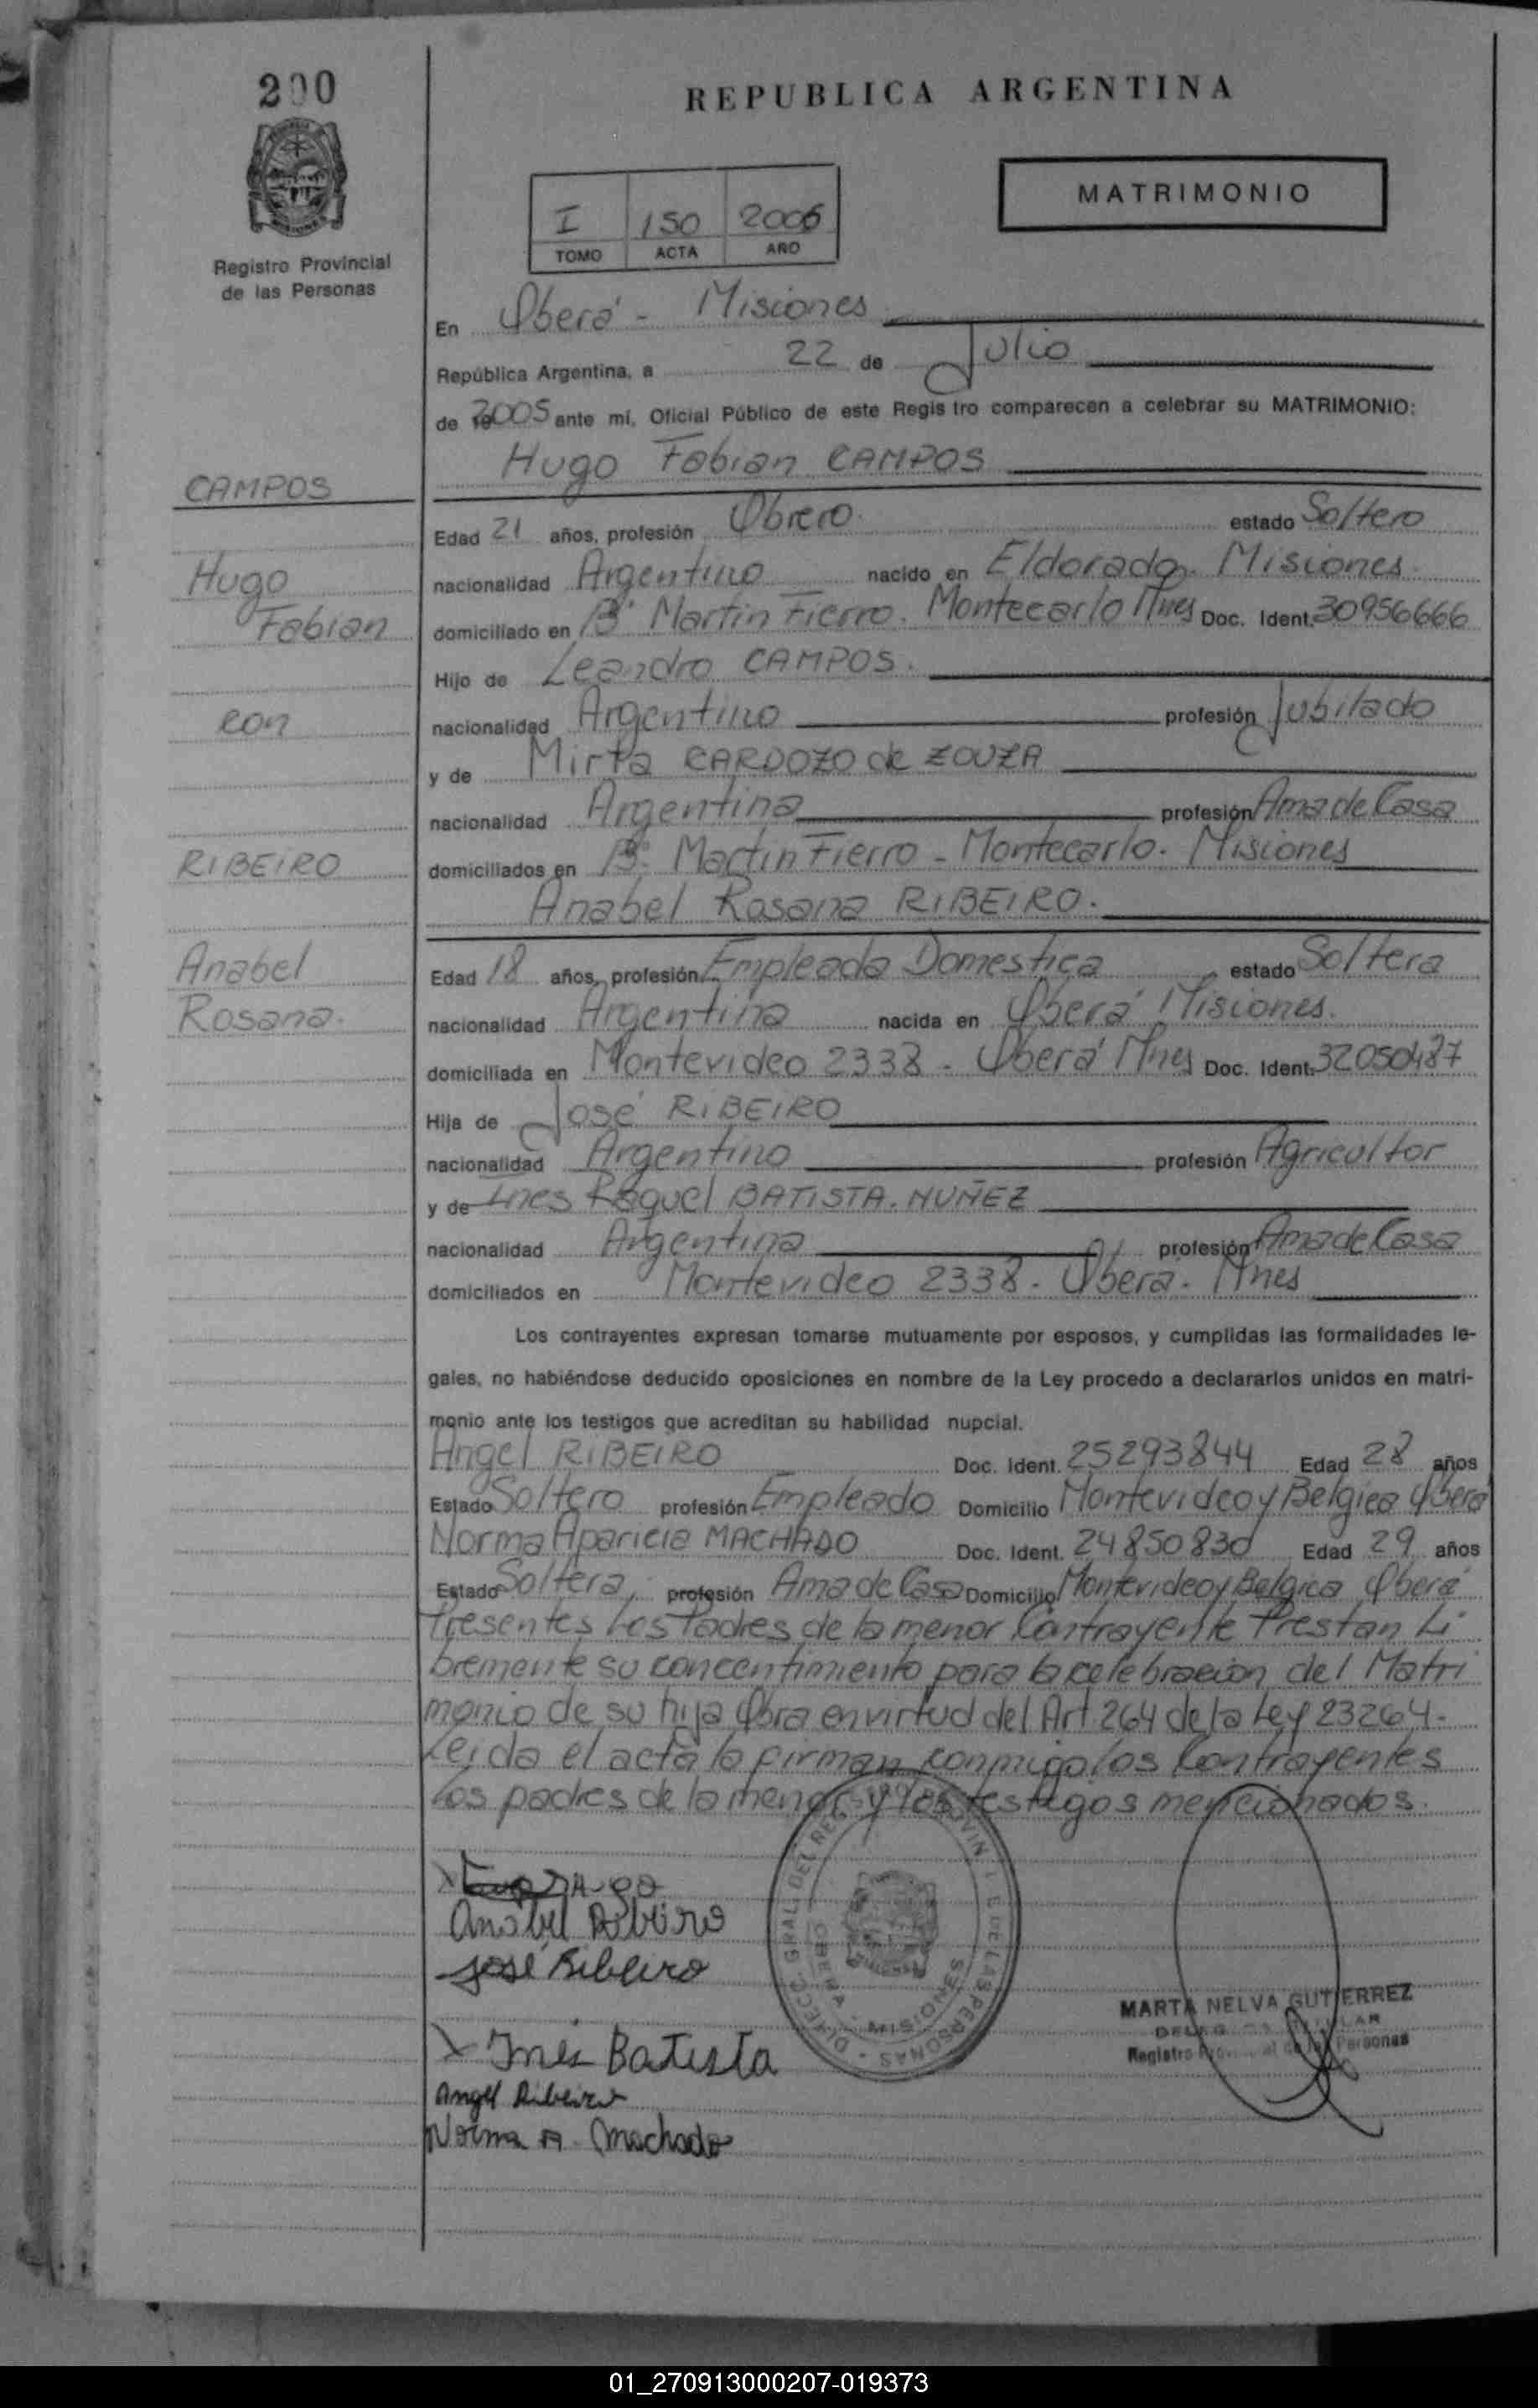 200
REPUBLICA ARGENTINA
MATRIMONIO
I 150 2005
TOMO ACTA AÑO
Registro Provincial
de las Personas
En Oberá - Misiones
República Argentina, a 22 de Julio
de 2005 ante mí, Oficial Público de este Registro comparecen a celebrar su MATRIMONIO:
Hugo Fabian CAMPOS
CAMPOS
Edad 21 años, profesión Obrero estado Soltero
Hugo
nacionalidad Argentino nacido en Eldorado. Misiones.
Fabian
domiciliado en Bº Martin Fierro. Montecarlo Mnes Doc. Ident. 30956666
Hijo de Leandro CAMPOS.
con
nacionalidad Argentino profesión Jubilado
y de Mirta CARDOZO de ZOUZA
nacionalidad Argentina profesión Ama de Casa
RIBEIRO
domiciliados en Bº Martin Fierro - Montecarlo. Misiones
Anabel Rosana RIBEIRO.
Anabel
Edad 18 años, profesión Empleada Domestica estado Soltera
Rosana.
nacionalidad Argentina nacida en Oberá Misiones.
domiciliada en Montevideo 2338 - Oberá Mnes Doc. Ident. 32050487
Hija de José RIBEIRO
nacionalidad Argentino profesión Agricultor
y de Ines Raquel BATISTA. NUÑEZ
nacionalidad Argentina profesión Ama de Casa
domiciliados en Montevideo 2338 - Oberá - Mnes
Los contrayentes expresan tomarse mutuamente por esposos, y cumplidas las formalidades le-
gales, no habiéndose deducido oposiciones en nombre de la Ley procedo a declararlos unidos en matri-
monio ante los testigos que acreditan su habilidad nupcial.
Angel RIBEIRO Doc. Ident. 25293844 Edad 28 años
Estado Soltero profesión Empleado Domicilio Montevideo y Belgica Oberá
Norma Aparicia MACHADO Doc. Ident. 24850830 Edad 29 años
Estado Soltera, profesión Ama de Casa Domicilio Montevideo y Belgica Oberá
Presentes Los Padres de la menor Contrayente Prestan Li
bremente su concentimiento para la celebracion del Matri
monio de su hija Obra en virtud del Art 264 de la Ley 23264.
Leida el acta la firman conmigo los Contrayentes
los padres de la menor y los testigos mencionados.
Anabel Ribeiro
José Ribeiro
X Inés Batista
Angel Ribeiro
Norma A. Machado
DIRECC. GRAL. DEL REG. PROVIN. DE LAS PERSONAS
OBERA MISIONES
MARTA NELVA GUTIERREZ
Registro Provincial de las Personas
01_270913000207-019373